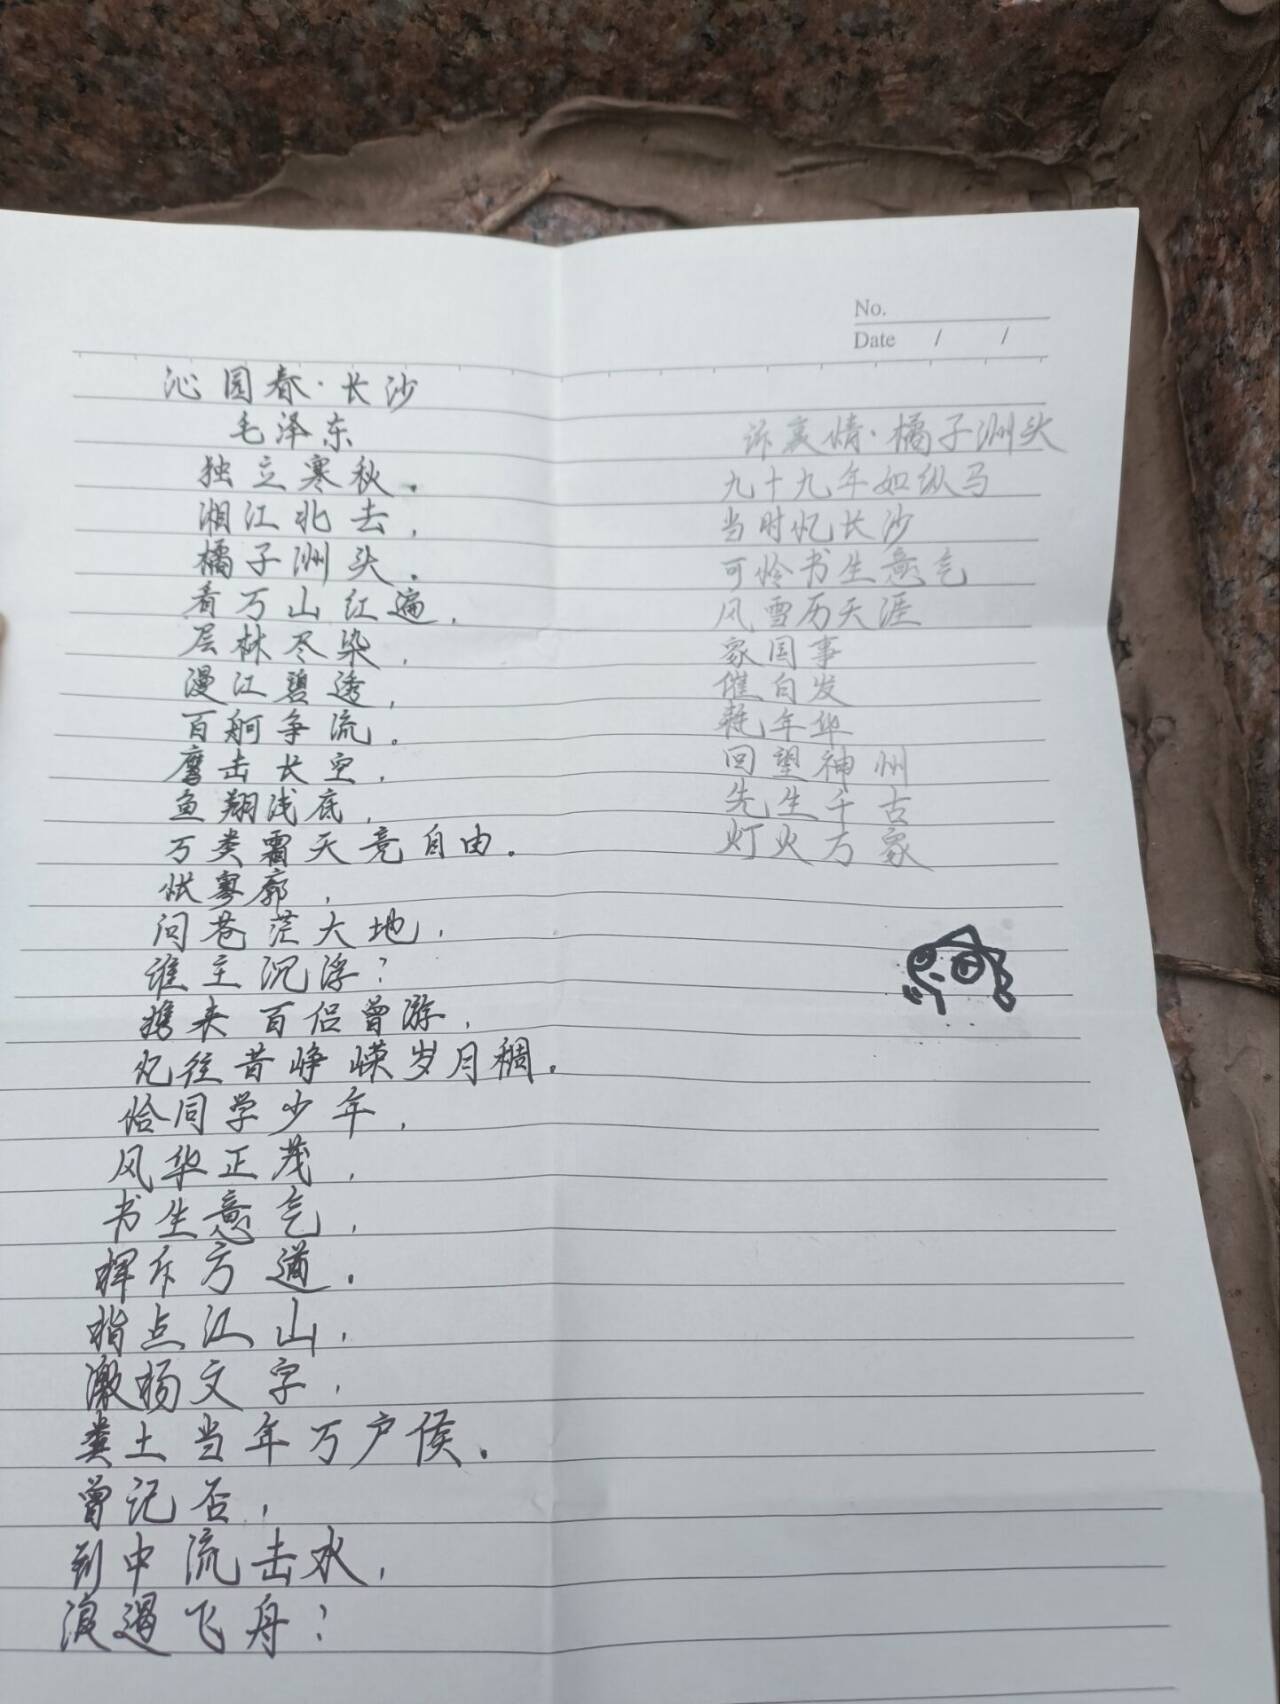 No.
Date / /
沁园春·长沙
毛泽东
独立寒秋.
湘江北去,
橘子洲头.
看万山红遍,
层林尽染,
漫江碧透,
百舸争流。
鹰击长空,
鱼翔浅底,
万类霜天竞自由.
怅寥廓,
问苍茫大地,
谁主沉浮?
携来百侣曾游,
忆往昔峥嵘岁月稠.
恰同学少年,
风华正茂,
书生意气,
挥斥方遒.
指点江山,
激扬文字,
粪土当年万户侯.
曾记否,
到中流击水,
浪遏飞舟?
诉衷情·橘子洲头
九十九年如纵马
当时忆长沙
可怜书生意气
风雪历天涯
家国事
催白发
耗年华
回望神州
先生千古
灯火万家